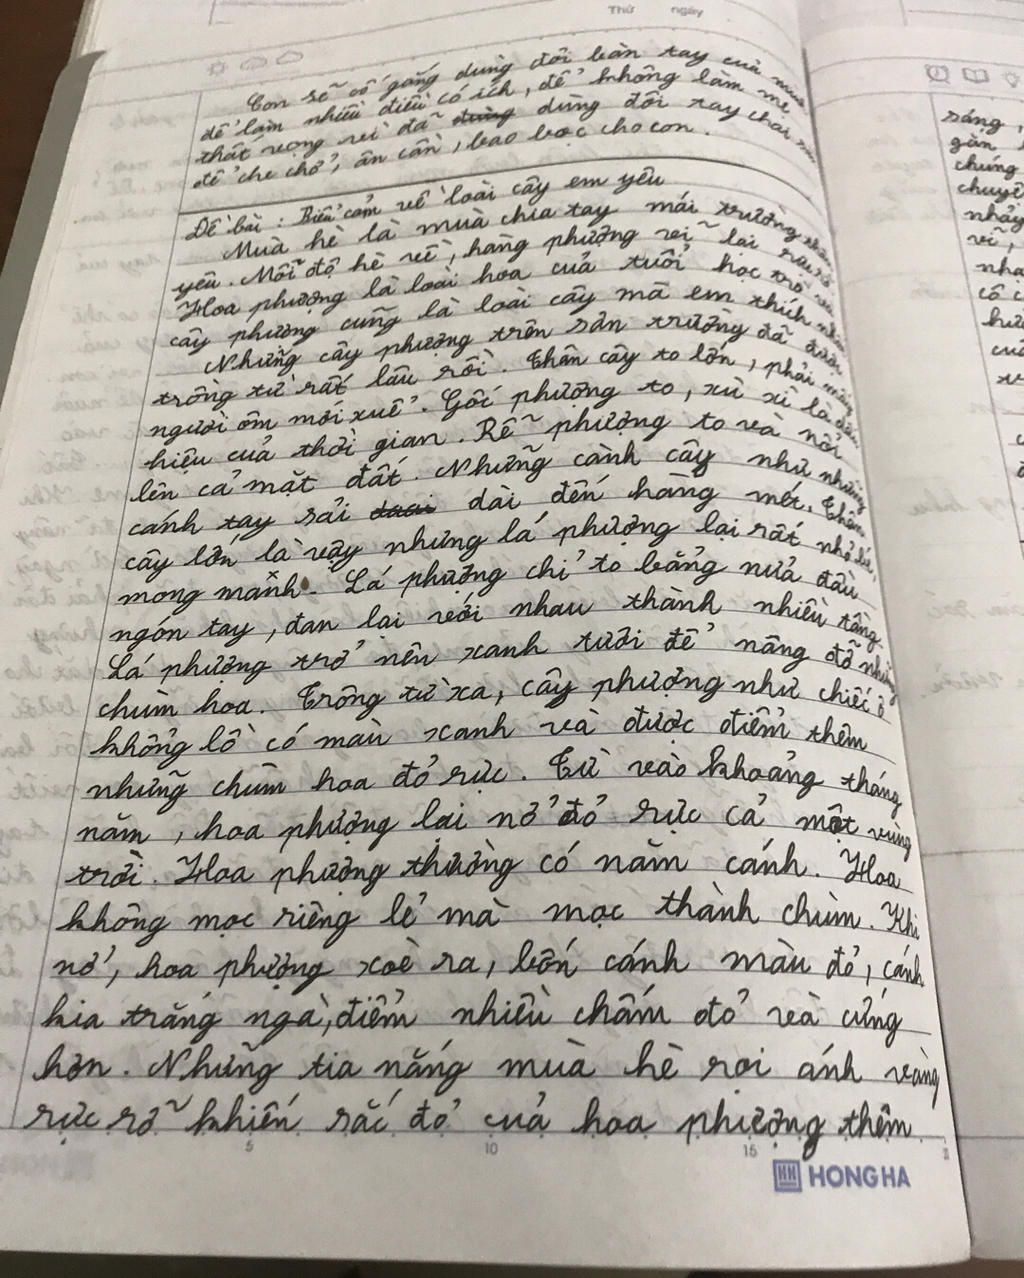 Thứ ngày
Con sẽ cố gắng dùng đôi bàn tay của mình
để làm nhiều điều có ích, để không làm mẹ
thất vọng vì đã dùng dùng đôi tay chai
để che chở, ân cần, bao bọc cho con.
Đề bài : Biểu cảm về loài cây em yêu
Mùa hè là mùa chia tay mái trường thân
yêu. Mỗi độ hè về, hàng phượng vĩ lại
Hoa phượng là loài hoa của tuổi học trò và
cây phượng cũng là loài cây mà em thích nhất
Những cây phượng trên sân trường đã được
trồng từ rất lâu rồi. Thân cây to lớn, phải mấy
người ôm mới xuể. Gốc phượng to, xù xì là dấu
hiệu của thời gian. Rễ phượng to và nổi
lên cả mặt đất. Những cành cây như những
cánh tay sải dài đến hàng mét. Thân
cây lớn là vậy nhưng lá phượng lại rất nhỏ bé,
mong manh. Lá phượng chỉ to bằng nửa đầu
ngón tay, đan lại với nhau thành nhiều tầng
Lá phượng trở nên xanh tươi để nâng đỡ những
chùm hoa. Trông từ xa, cây phượng như chiếc ô
khổng lồ có màu xanh và được điểm thêm
những chùm hoa đỏ rực. Cứ vào khoảng tháng
năm, hoa phượng lại nở đỏ rực cả một vùng
trời. Hoa phượng thường có năm cánh. Hoa
không mọc riêng lẻ mà mọc thành chùm. Khi
nở, hoa phượng xoè ra, bốn cánh màu đỏ, cánh
kia trắng ngà, điểm nhiều chấm đỏ và cứng
hơn. Những tia nắng mùa hè rọi ánh vàng
rực rỡ khiến sắc đỏ của hoa phượng thêm
5 10 15
HONG HA
sáng,
gần
chúng
chuyện
nhảy
vĩ,
nhạ
cô c